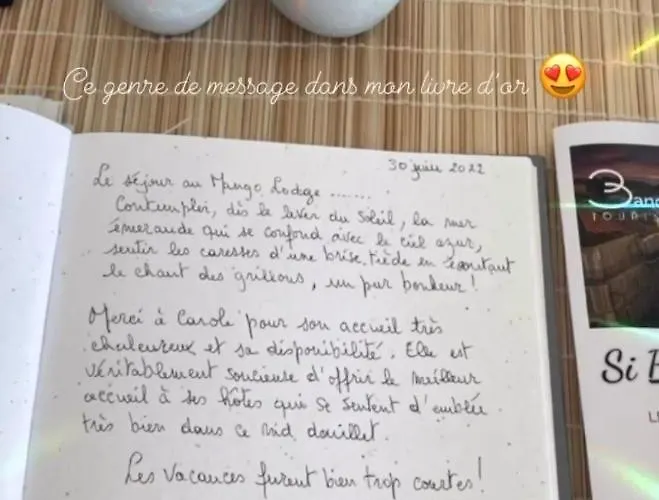 Ce genre de message dans mon livre d'or 😍
30 juin 2022
Le séjour au Mungo Lodge .......
Contempler, dès le lever du Soleil, la mer
émeraude qui se confond avec le ciel azur,
sentir les caresses d'une brise tiède en écoutant
le chant des grillons, un pur bonheur !
Merci à Carole pour son accueil très
chaleureux et sa disponibilité. Elle est
véritablement soucieuse d'offrir le meilleur
accueil à ses hôtes qui se sentent d'emblée
très bien dans ce nid douillet.
Les vacances furent bien trop courtes !
TOURI
Si